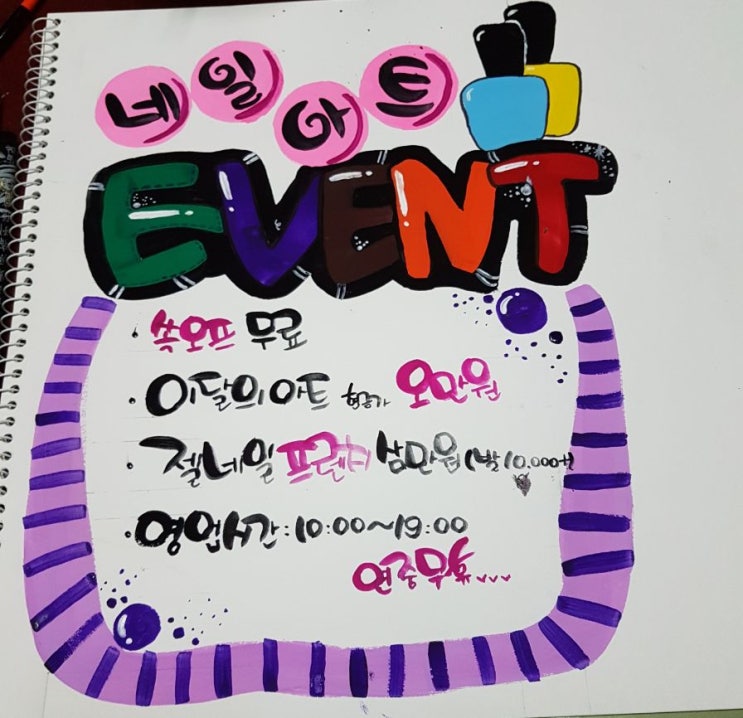 네일아트
EVENT
· 쏙오프 무료
· 이달의아트 현금가 오만원
· 젤네일프렌치 삼만원 (발 10,000+)
· 영업시간:10:00~19:00
연중무휴